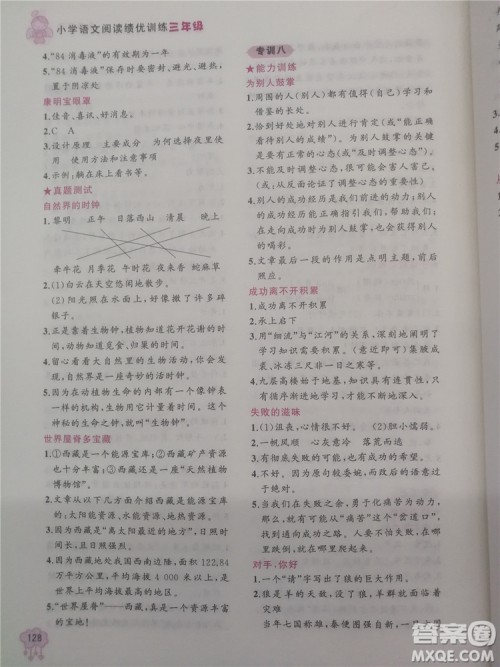 小学语文阅读绩优训练三年级
4.“84消毒液”的有效期为一年
5.“84消毒液”保存时要密封,避光,避热,
置于阴凉处
康明宝眼罩
1.佳音、喜讯、好消息。
2.C A
3.设计原理 主要成分 为何选择及使
用 使用方法和注意事项
4.示例:躺在床上看书等。
★真题测试
自然界的时钟
1.黎明 正午 日落西山 清晨 晚上
牵牛花 月季花 午时花 夜来香 蛇麻草
2.(1)白云在走路。
(2)阳光照在水面上,好像撒了许多碎
银子。
3.正是靠着生物钟,植物知道花开花谢的
时间,动物知道觅食、归巢的时间。
4.留心看看大自然里的生物活动,你会发
现,自然界是一座奇妙的活时钟。
5.因为动植物生命的内部有一个像钟表
一样的机构,生物活动也像钟表一样准
确,所以叫“生物钟”。
世界屋脊多宝藏
1.①西藏是一座能源宝库。②西藏矿产资源
也十分丰富。③西藏还是一座“天然植物
博物馆”。
2.文章从以下几个方面写西藏是能源宝库
的:太阳能资源、水能资源、地热资源。
3.因为西藏的太阳能资源丰富。日照时间
长且日照强烈。
4.因为西藏位于我国西南边陲,面积122.84
万平方公里,平均海拔4 000米以上,
是世界上平均海拔最高的地区。
5.“世界屋脊”——西藏,真是一个资源丰富
的宝地!
128
专训八
★能力训练
为别人鼓掌
1.周围的人(都)都有值得(自己)学习和
借鉴的长处。
2.恰到好处地对别人进行肯定(或“能正确
看待别人的成绩”)。为别人鼓掌的关键
是要有正常的心态(或“及时调整心态”)。
3.(如果)不及时调整心态,很可能会害人害
己。(从反面论证了及时调整心态的重要性)
4.在别人取得成功时,我们要为他们的成
功喝彩;在别人失败时,我们要真诚的
帮助他们,给予他们前进的力量。我们
在走向成功时为别人鼓掌,也会引来别人
的喝彩。
5.文章最后一段的作用是点明主题,前后
照应。
成功离不开积累
1.承上启下
2.用“细流”与“江河”的关系,深刻地阐明了
学习就是要注重积累。
3.如果没有……就没有……(意近即可)集腋成
裘,冰冻三尺非一日之寒。
4.九层高楼始于地基,知识具有连贯性,只有
循序渐进地学习,才能获得丰富的知识。
失败的滋味
1.(1)沮丧,心情很不好。(2)胆小懦弱。
2.一帆风顺 心灰意冷 落荒而逃
3.不可以。因为原句较委婉,而改后的语意过
于绝对。
4.当我们失败以后,不要过于伤心难过,要
勇敢地面对失败,从失败中走出来,化痛苦
为动力,那么就可能从“痛苦”这个“岔道口”,
找到走向成功的道路。如果你失败了,在哪
里跌倒,就在哪里爬起来!
对手,你好
1.一个“请”字写出了狼的巨大作用。
2.没有狼的日子,羊是很快乐,但羊群就
衰败了。
当年七国称雄,秦国经常侵略其他六国,